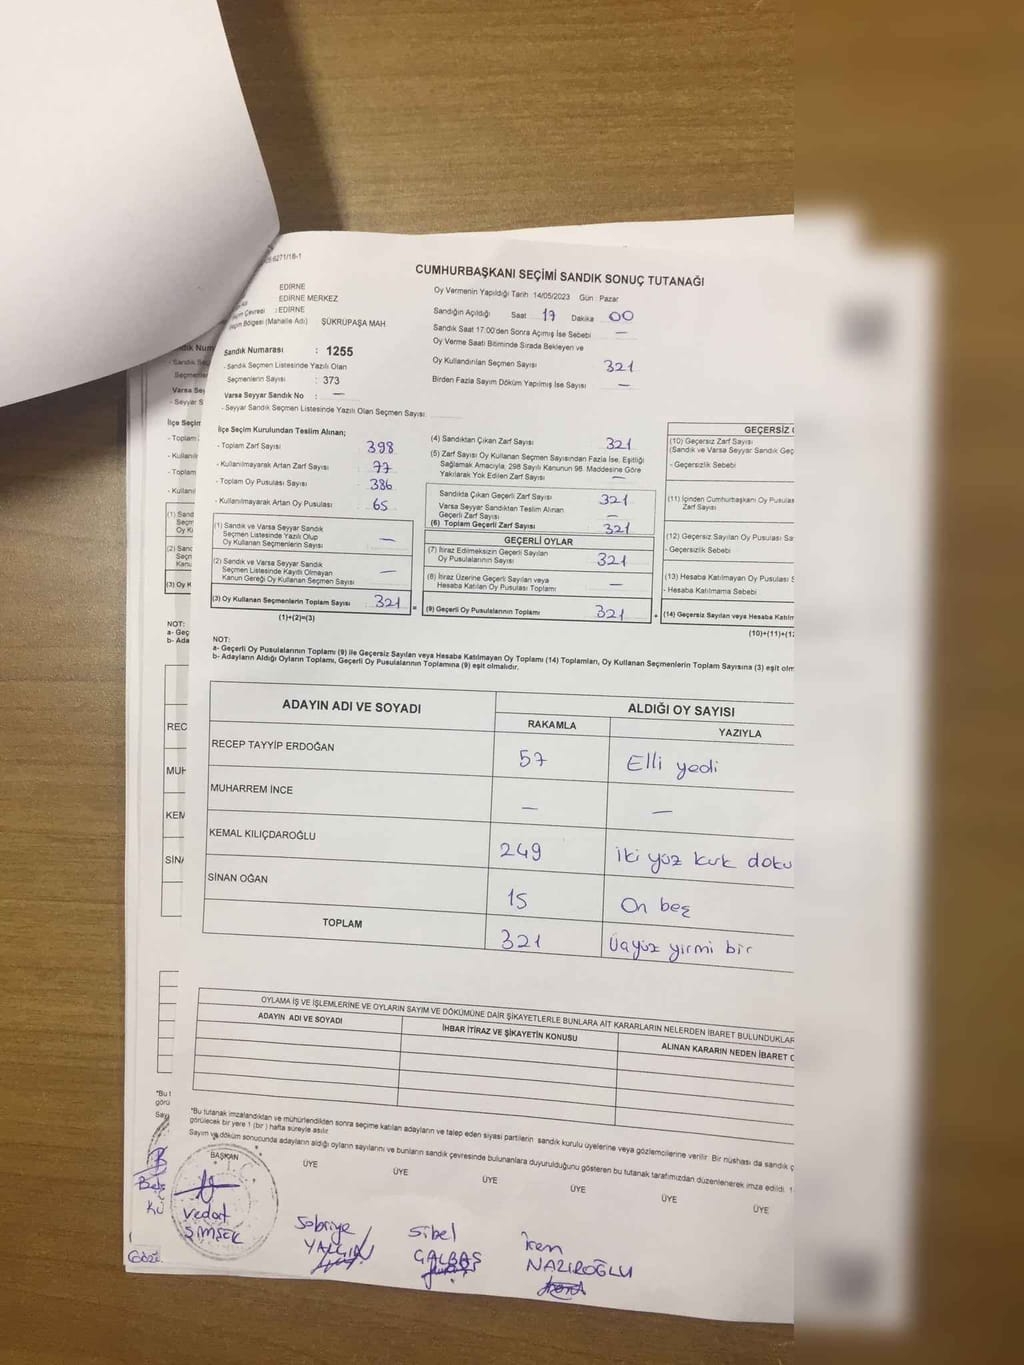 6271/18-1
CUMHURBAŞKANI SEÇİMİ SANDIK SONUÇ TUTANAĞI
EDİRNE
EDİRNE MERKEZ
Çevresi : EDİRNE
Seçim Bölgesi (Mahalle Adı) ŞÜKRÜPAŞA MAH.
Oy Vermenin Yapıldığı Tarih 14/05/2023 Gün Pazar
Sandığın Açıldığı Saat 17 Dakika 00
Sandık Saat 17:00'den Sonra Açımış İse Sebebi —
Oy Verme Saati Bitiminde Sırada Bekleyen ve
Sandık Numarası : 1255
- Sandık Seçmen Listesinde Yazılı Olan
Seçmenlerin Sayısı : 373
Varsa Seyyar Sandık No : —
- Seyyar Sandık Seçmen Listesinde Yazılı Olan Seçmen Sayısı
Oy Kullandırılan Seçmen Sayısı 321
Birden Fazla Sayım Döküm Yapılmış İse Sayısı —
İlçe Seçim Kurulundan Teslim Alınan;
- Toplam Zarf Sayısı 398
- Kullanılmayarak Artan Zarf Sayısı 77
- Toplam Oy Pusulası Sayısı 386
- Kullanılmayarak Artan Oy Pusulası 65
(1) Sandık ve Varsa Seyyar Sandık
Seçmen Listesinde Yazılı Olup
Oy Kullanan Seçmenlerin Sayısı —
(2) Sandık ve Varsa Seyyar Sandık
Seçmen Listesinde Kayıtlı Olmayan
Kanun Gereği Oy Kullanan Seçmen Sayısı —
(3) Oy Kullanan Seçmenlerin Toplam Sayısı 321 =
(1)+(2)=(3)
(4) Sandıktan Çıkan Zarf Sayısı 321
(5) Zarf Sayısı Oy Kullanan Seçmen Sayısından Fazla İse, Eşitliği
Sağlamak Amacıyla, 298 Sayılı Kanunun 98. Maddesine Göre
Yakılarak Yok Edilen Zarf Sayısı —
Sandıkta Çıkan Geçerli Zarf Sayısı 321
Varsa Seyyar Sandıktan Teslim Alınan
Geçerli Zarf Sayısı —
(6) Toplam Geçerli Zarf Sayısı 321
GEÇERLİ OYLAR
(7) İtiraz Edilmeksizin Geçerli Sayılan
Oy Pusulalarının Sayısı 321
(8) İtiraz Üzerine Geçerli Sayılan veya
Hesaba Katılan Oy Pusulası Toplamı —
(9) Geçerli Oy Pusulalarının Toplamı 321
GEÇERSİZ
(10) Geçersiz Zarf Sayısı
(Sandık ve Varsa Seyyar Sandık Geç
- Geçersizlik Sebebi
(11) İçinden Cumhurbaşkanı Oy Pusulas
Zarf Sayısı
(12) Geçersiz Sayılan Oy Pusulası Sa
- Geçersizlik Sebebi
(13) Hesaba Katılmayan Oy Pusulası S
- Hesaba Katılmama Sebebi
(14) Geçersiz Sayılan veya Hesaba Katılm
(10)+(11)+(12
NOT:
a- Geçerli Oy Pusulalarının Toplamı (9) ile Geçersiz Sayılan veya Hesaba Katılmayan Oy Toplamı (14) Toplamları, Oy Kullanan Seçmenlerin Toplam Sayısına (3) eşit olm
b- Adayların Aldığı Oyların Toplamı, Geçerli Oy Pusulalarının Toplamına (9) eşit olmalıdır.
ADAYIN ADI VE SOYADI ALDIĞI OY SAYISI
RAKAMLA YAZIYLA
RECEP TAYYİP ERDOĞAN 57 Elli yedi
MUHARREM İNCE — —
KEMAL KILIÇDAROĞLU 249 iki yüz kırk doku
SİNAN OĞAN 15 On beş
TOPLAM 321 Üçyüz yirmi bir
OYLAMA İŞ VE İŞLEMLERİNE VE OYLARIN SAYIM VE DÖKÜMÜNE DAİR ŞİKAYETLERLE BUNLARA AİT KARARLARIN NELERDEN İBARET BULUNDUKLAR
ADAYIN ADI VE SOYADI İHBAR İTİRAZ VE ŞİKAYETİN KONUSU ALINAN KARARIN NEDEN İBARET O
*Bu tutanak imzalandıktan ve mühürlendikten sonra seçime katılan adayların ve talep eden siyasi partilerin sandık kurulu üyelerine veya gözlemcilerine verilir. Bir nüshası da sandık ç
görülecek bir yere 1 (bir) hafta süreyle asılır.
Sayım ve döküm sonucunda adayların aldığı oyların sayılarını ve bunların sandık çevresinde bulunanlara duyurulduğunu gösteren bu tutanak tarafımızdan düzenlenerek imza edildi.
BAŞKAN ÜYE ÜYE ÜYE ÜYE ÜYE ÜYE
Vedat ŞİMŞEK
Sabriye YALÇIN
Sibel GALBAŞ
NAZIROĞLU